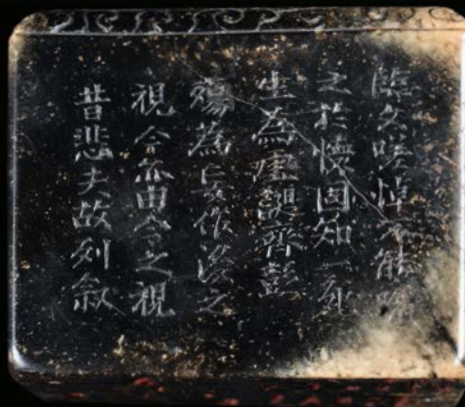 臨文嗟悼不能喻
之於懷固知一死
生為虛誕齊彭
殤為妄作後之
視今亦由今之視
昔悲夫故列敘